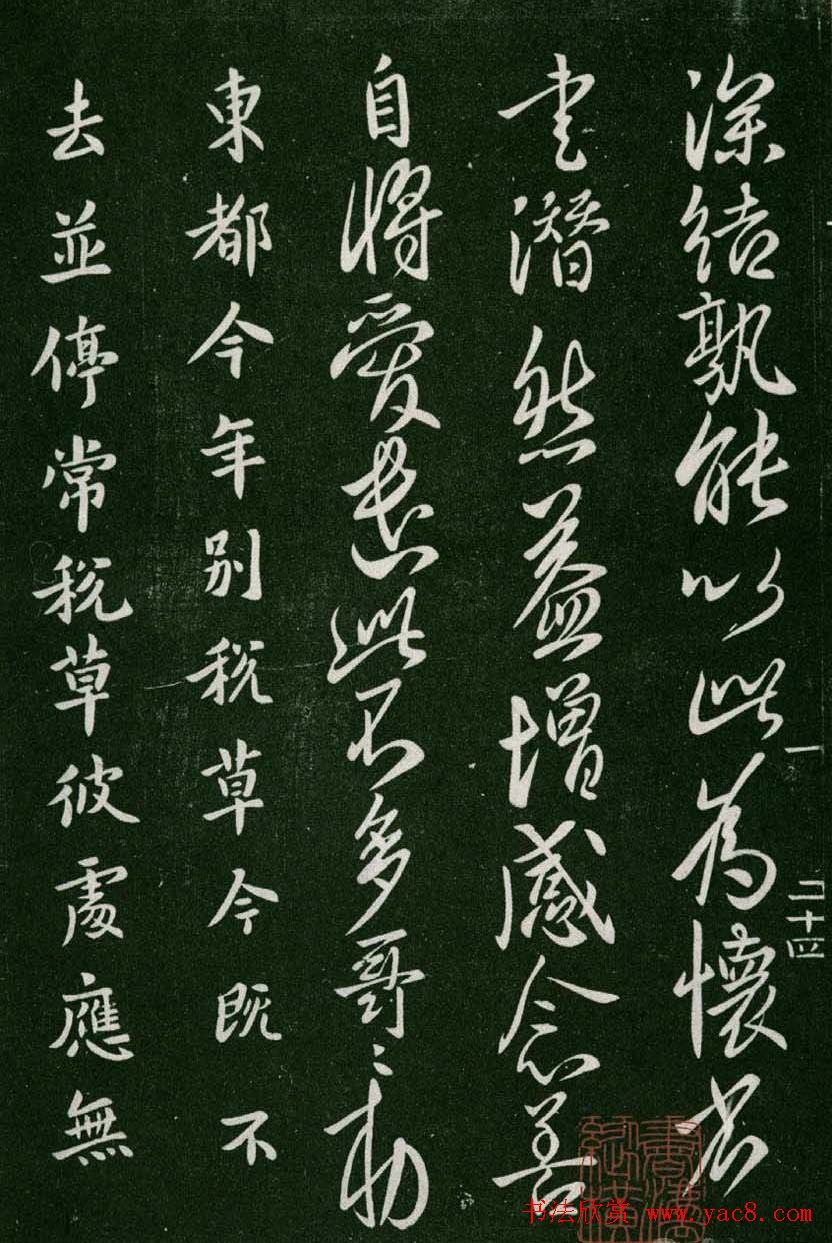 深結孰能以此為懷省
書潛然益增感念善
自將愛遣此不多哥〻勅
東都今年別稅草今既不
去並停常稅草彼處應無
一 二十四
书法欣赏 www.yac8.com